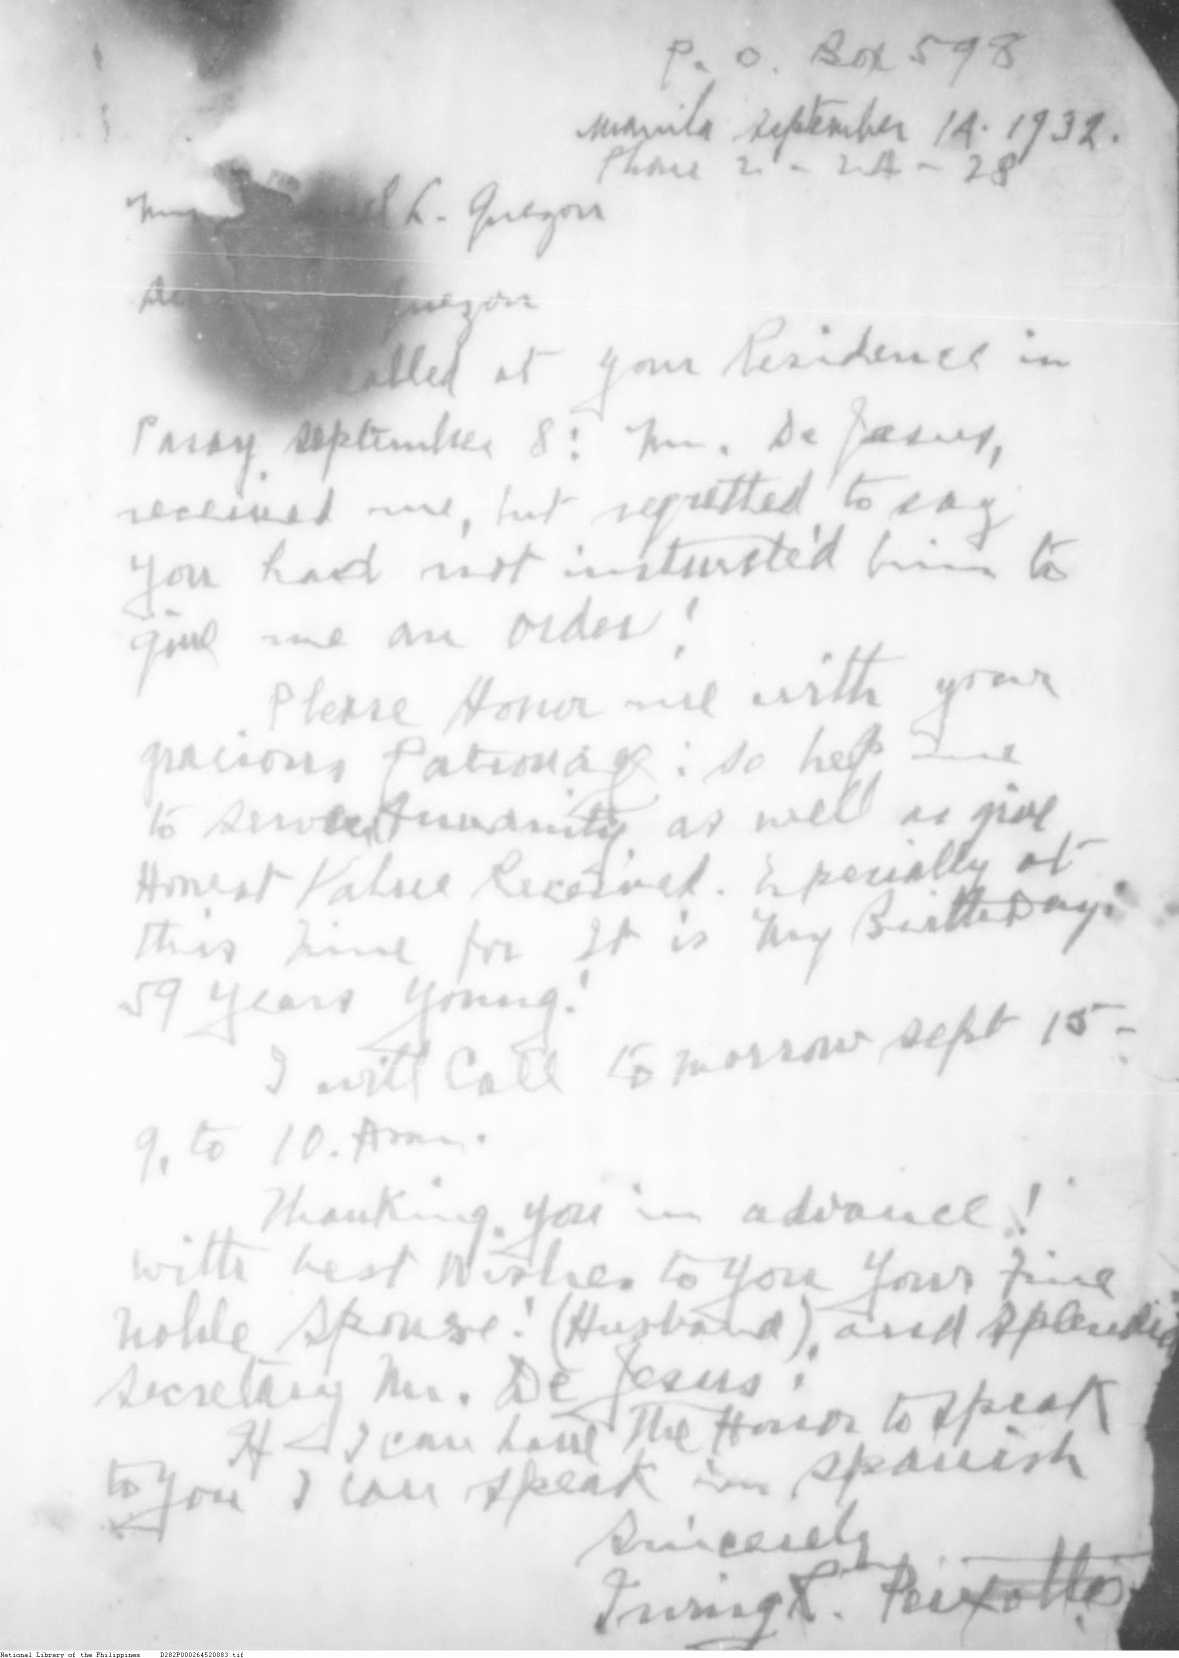 P. O. Box 598
Manila September 14. 1932.
Phone 2 - 24 - 28
L. Quezon
Quezon
called at your Residence in
Pasay. September 8: Mr. De Jesus,
received me, but regretted to say
you had not insturcte'd him to
give me an order!
Please Honor me with your
gracious Patronage: so help me
to serve Humanity, as well as give
Honest Value Received. Especially at
this Time for It is My BirthDay:
59 years young!
I will Call tomorrow sept 15 -
9, to 10. Am.
Thanking you in advance!
with best Wishes to you your Fine
noble Spouse! (Husband), and splendid
secretary Mr. De Jesus!
If I can have The Honor to speak
to you I can speak in spanish
Sincerely
Irving Peixotto
National Library of the Philippines D282P000264520083.tif